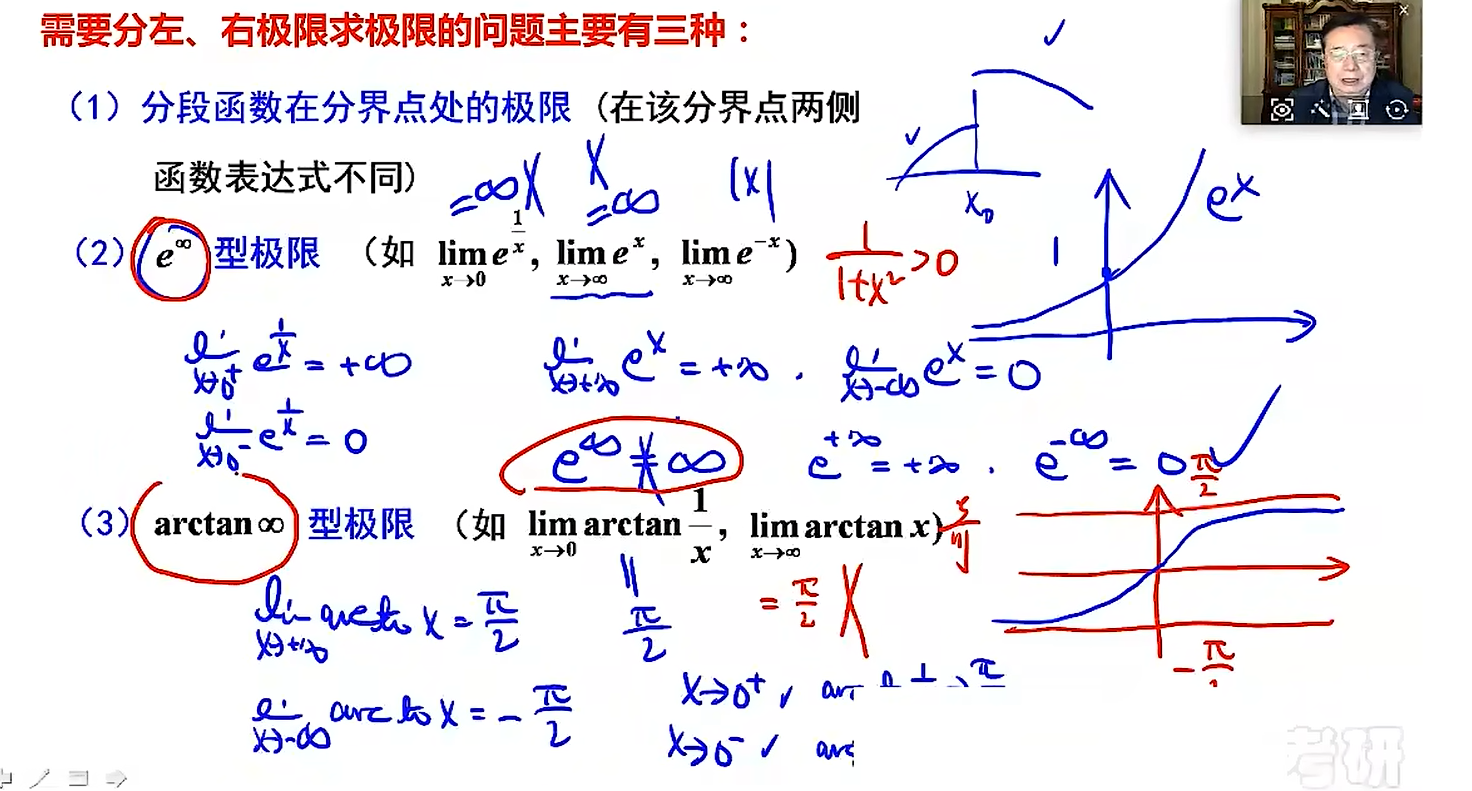 需要分左、右极限求极限的问题主要有三种：
（1）分段函数在分界点处的极限（在该分界点两侧
函数表达式不同）
=∞ X
X =∞
|x|
x₀
e^x
1
（2）e^∞ 型极限 （如 lim_{x→0} e^{1/x}, lim_{x→∞} e^x, lim_{x→∞} e^{-x}）
1/(1+x²) > 0
lim_{x→0⁺} e^{1/x} = +∞
lim_{x→+∞} e^x = +∞ . lim_{x→-∞} e^x = 0
lim_{x→0⁻} e^{1/x} = 0
e^∞ ≠ ∞
e^{+∞} = +∞ . e^{-∞} = 0
π/2
（3）arctan∞ 型极限 （如 lim_{x→0} arctan 1/x, lim_{x→∞} arctan x）
= π/2 X
‖
π/2
-π/2
lim_{x→+∞} arctan x = π/2
lim_{x→-∞} arctan x = -π/2
x→0⁺ ✓
x→0⁻ ✓ arc
考研